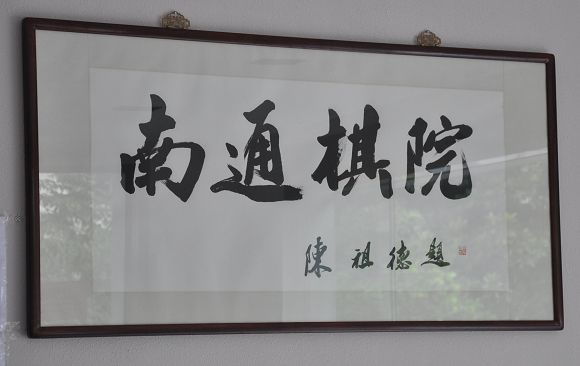 南通棋院
陳祖德題